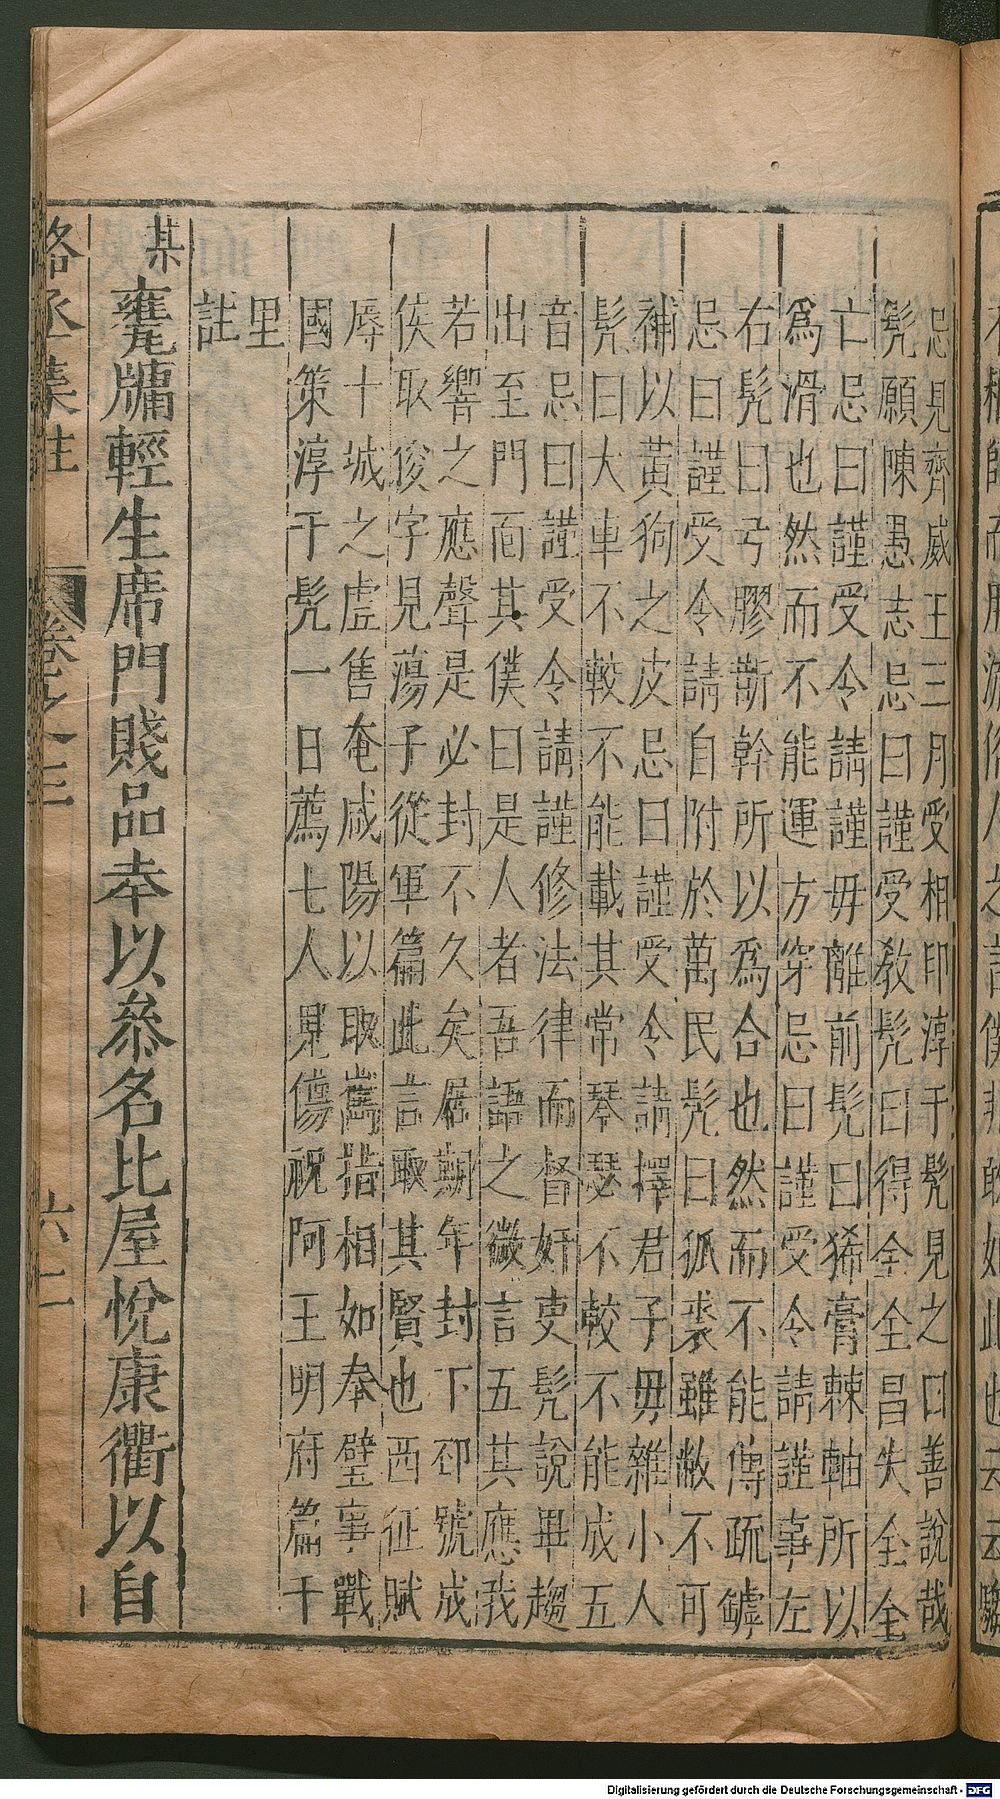 忌見齊威王三月受相印淳于髡見之曰善說哉
髡願陳愚志忌曰謹受教髡曰得全全昌失全全
亡忌曰謹受令請謹毋離前髡曰狶膏棘軸所以
爲滑也然而不能運方穿忌曰謹受令請謹事左
右髡曰弓膠斯幹所以爲合也然而不能傳疏罅
忌曰謹受令請自附於萬民髡曰狐裘雖敝不可
補以黃狗之皮忌曰謹受令請擇君子毋雜小人
髡曰大車不較不能載其常琴瑟不較不能成五
音忌曰謹受令請謹修法律而督奸吏髡說畢趨
出至門面其僕曰是人者吾語之微言五其應我
若響之應聲是必封不久矣居期年封下邳號成
侯取俊字見蕩子從軍篇此言取其賢也西征賦
辱十城之虛售奄咸陽以取雋指相如奉璧事戰
國策淳于髡一日薦七人見傷祝阿王明府篇千
里
註
某甕牖輕生席門賤品幸以參名比屋悅康衢以自
丞集註 卷之三 六二
Digitalisierung gefördert durch die Deutsche Forschungsgemeinschaft - DFG